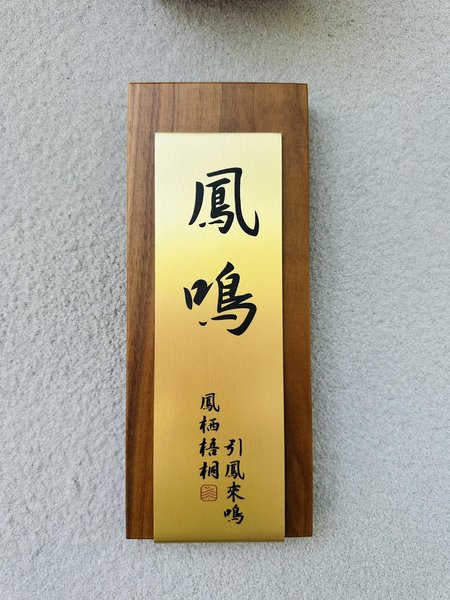 鳳鳴
引鳳來鳴
鳳栖梧桐